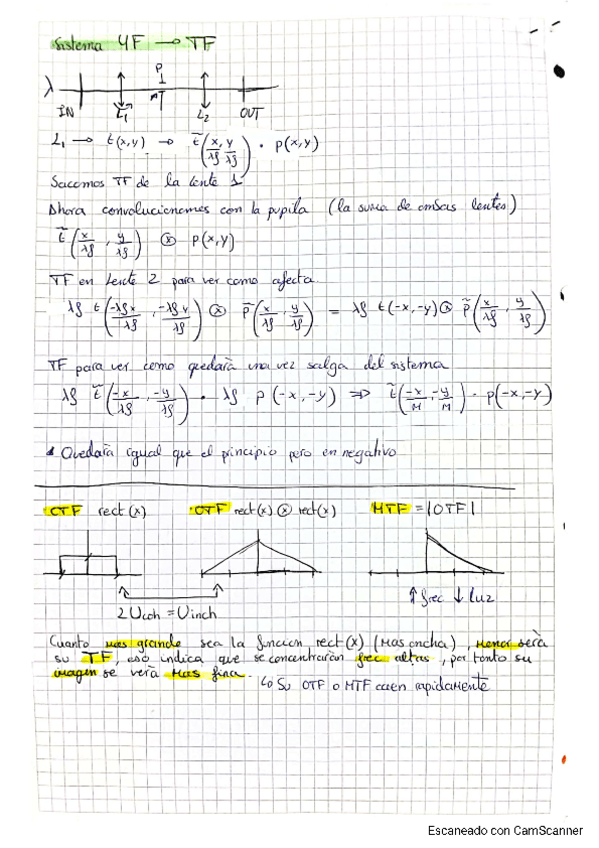 Sistema 4F → TF
λ
P
IN L₁ L₂ OUT
L₁ → t(x,y) → t̃(x/λf, y/λf) · p(x,y)
Sacamos TF de la lente 1
Ahora convolucionamos con la pupila (la suma de ambas lentes)
t̃(x/λf, y/λf) ⊗ p(x,y)
TF en lente 2 para ver como afecta
λf t(-λfx/λf, -λfy/λf) ⊗ p̃(x/λf, y/λf) = λf t(-x,-y) ⊗ p̃(x/λf, y/λf)
TF para ver como quedará una vez salga del sistema
λf t̃(-x/λf, -y/λf) · λf p(-x,-y) ⇒ t̃(-x/M, -y/M) · p(-x,-y)
Quedará igual que el principio pero en negativo
CTF rect(x) OTF rect(x) ⊗ rect(x) MTF = |OTF|
2 Ucoh = Uinch
↑ frec ↓ luz
Cuanto mas grande sea la funcion rect(x) (Mas ancha), menor será
su TF, eso indica que se concentrarán frec altas, por tanto su
imagen se verá mas fina.
↳ Su OTF o MTF caen rapidamente
Escaneado con CamScanner